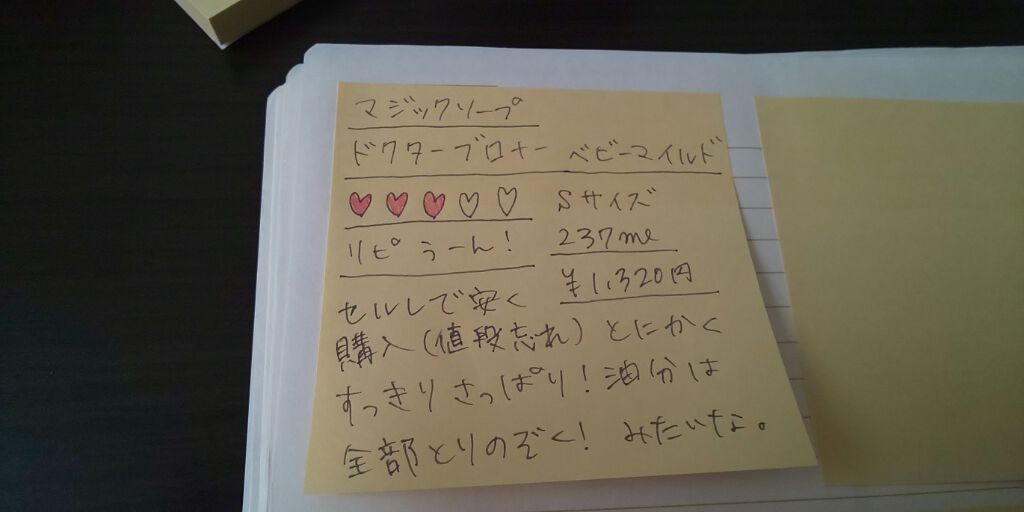 マジックソープ
ドクターブロナー ベビーマイルド
♥♥♥♡♡ Sサイズ
リピ うーん! 237ml
¥1,320円
セルレで安く
購入(値段忘れ)とにかく
すっきりさっぱり!油分は
全部とりのぞく! みたいな。